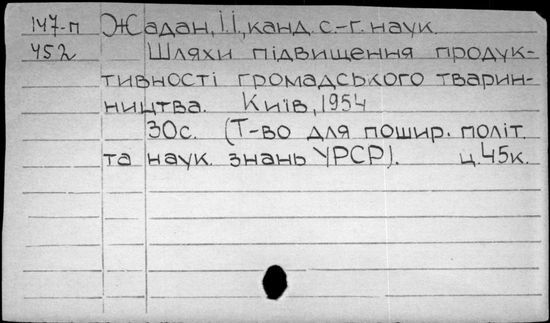 147-п Жадан, І.І., канд. с.-г. наук.
452 Шляхи підвищення продук-
тивності громадського тварин-
ництва. Київ, 1954
30с. (Т-во для пошир. політ.
та наук. знань УРСР). ц. 45к.